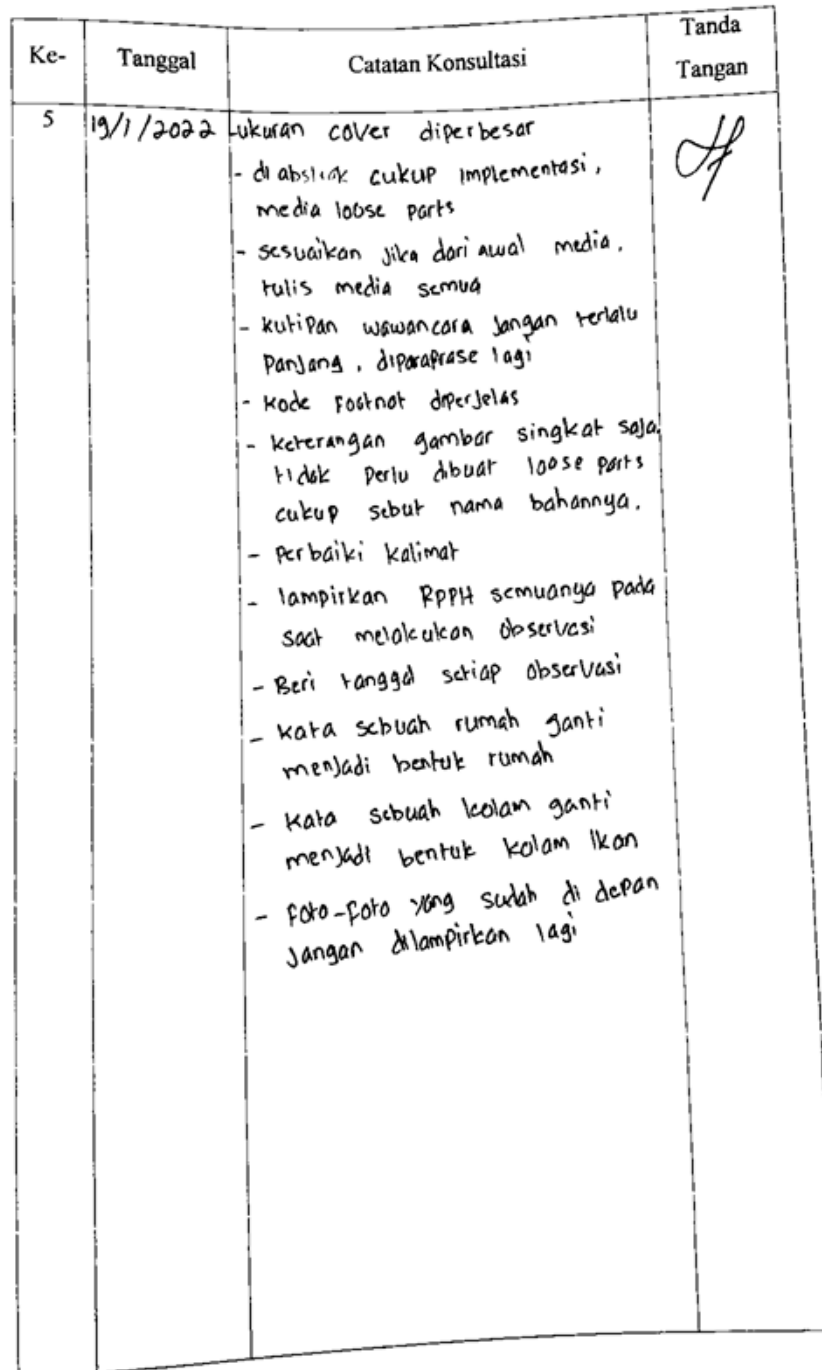 Ke- Tanggal Catatan Konsultasi Tanda Tangan
5 19/1/2022 - ukuran cover diperbesar
- di abstrak cukup implementasi,
media loose parts
- sesuaikan jika dari awal media,
tulis media semua
- kutipan wawancara jangan terlalu
panjang, diparaprase lagi
- kode footnot diperjelas
- keterangan gambar singkat saja,
tidak perlu dibuat loose parts
cukup sebut nama bahannya.
- perbaiki kalimat
- lampirkan RPPH semuanya pada
saat melakukan observasi
- Beri tanggal setiap observasi
- kata sebuah rumah ganti
menjadi bentuk rumah
- kata sebuah kolam ganti
menjadi bentuk kolam ikan
- foto-foto yang sudah di depan
jangan dilampirkan lagi